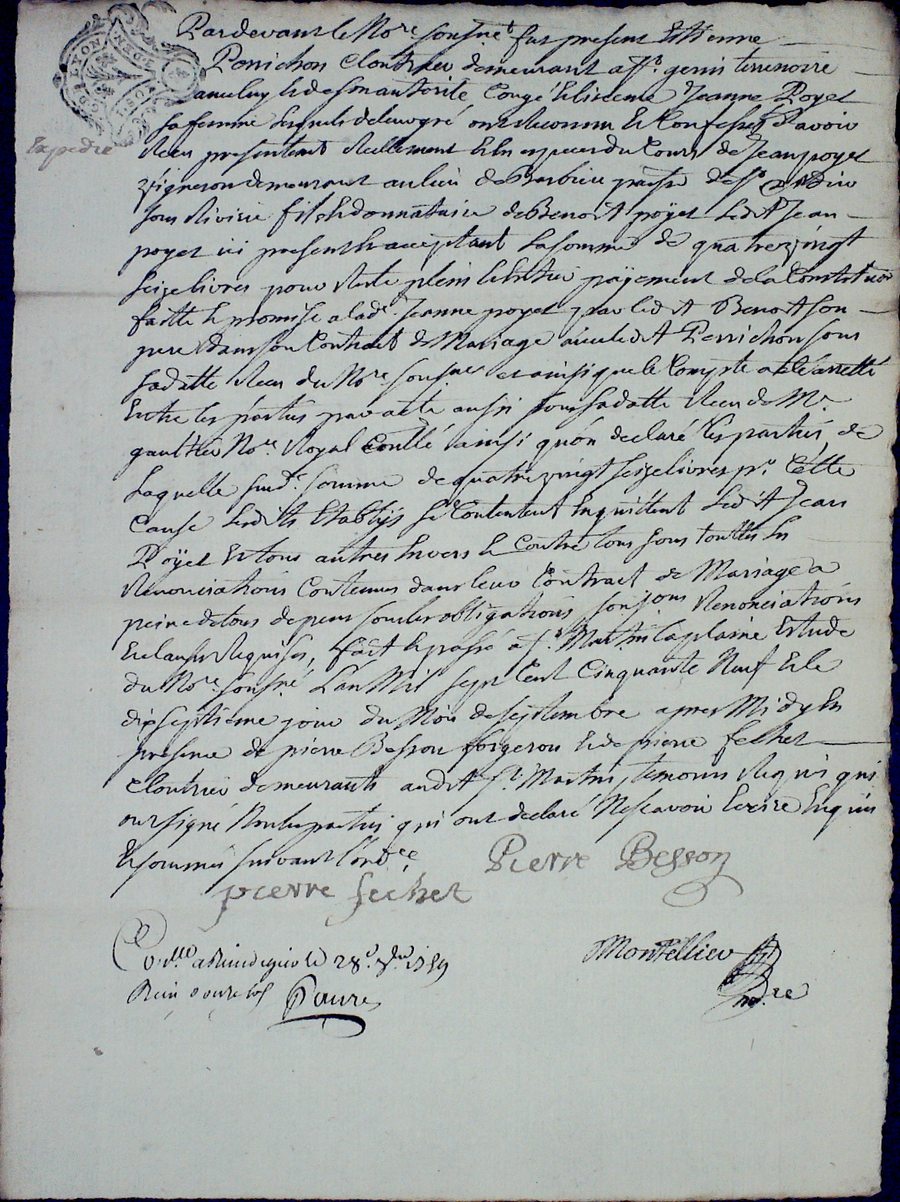 Pardevant le No.re sousné fut present Estienne
Perrichon cloutrier demeurant a St. genis terrenoire
avec luy et de son autorité Congé et licence Jeanne Poyet
sa femme lesquels de leur gré ont reconnu et Confessé d'avoir
Expedié
receu presentement réellement et en especes du Cours de Jean poyet
vigneron demeurant au lieu de Barbieu
sous Riviere fils et donnataire de Benoit poyet ledit Jean
poyet ici present et acceptant la somme de quatrevingt
seize livres pour reste plein et entier payement de la Constitution
faitte et promise a lade. Jeanne poyet par ledit Benoit son
pere dans son Contract de Mariage avec ledit Perrichon sous
sa datte receu du No.re sousné et ainsi que le Compte a été arretté
Entre les parties par acte aussi sous sa datte receu de Me.
gaultier No.re Royal ainsi qu'on declaré les parties, de
laquelle susd.e somme de quatrevingt seize livres pr. Cette
Cause lesdits Etablis se Contentent En quittent ledit Jean
Poyet Et tous autres Envers et Contre tous sous touttes les
Renonciations Contenues dans leur Contract de Mariage a
peine de tous depens sous les obligations, renonciations
Et clauses requises, fait et passé a St. Martin la plaine Etude
du No.re sousné L'an Mil sept Cent Cinquante Neuf et le
dix septieme jour du Mois de septembre apres Midy En
presence de pierre Besson forgeron et de pierre fechet
Cloutrier demeurants audit St. Martin, temoins requis qui
ont signé Non les parties qui ont declaré Ne scavoir Ecrire Enquis
Et sommés suivant l'ord.ce
Pierre Besson
pierre fechet
Con.llé a Rivedegier le 28e. 7bre 1759
Montellier
Faure
no.re
LYON